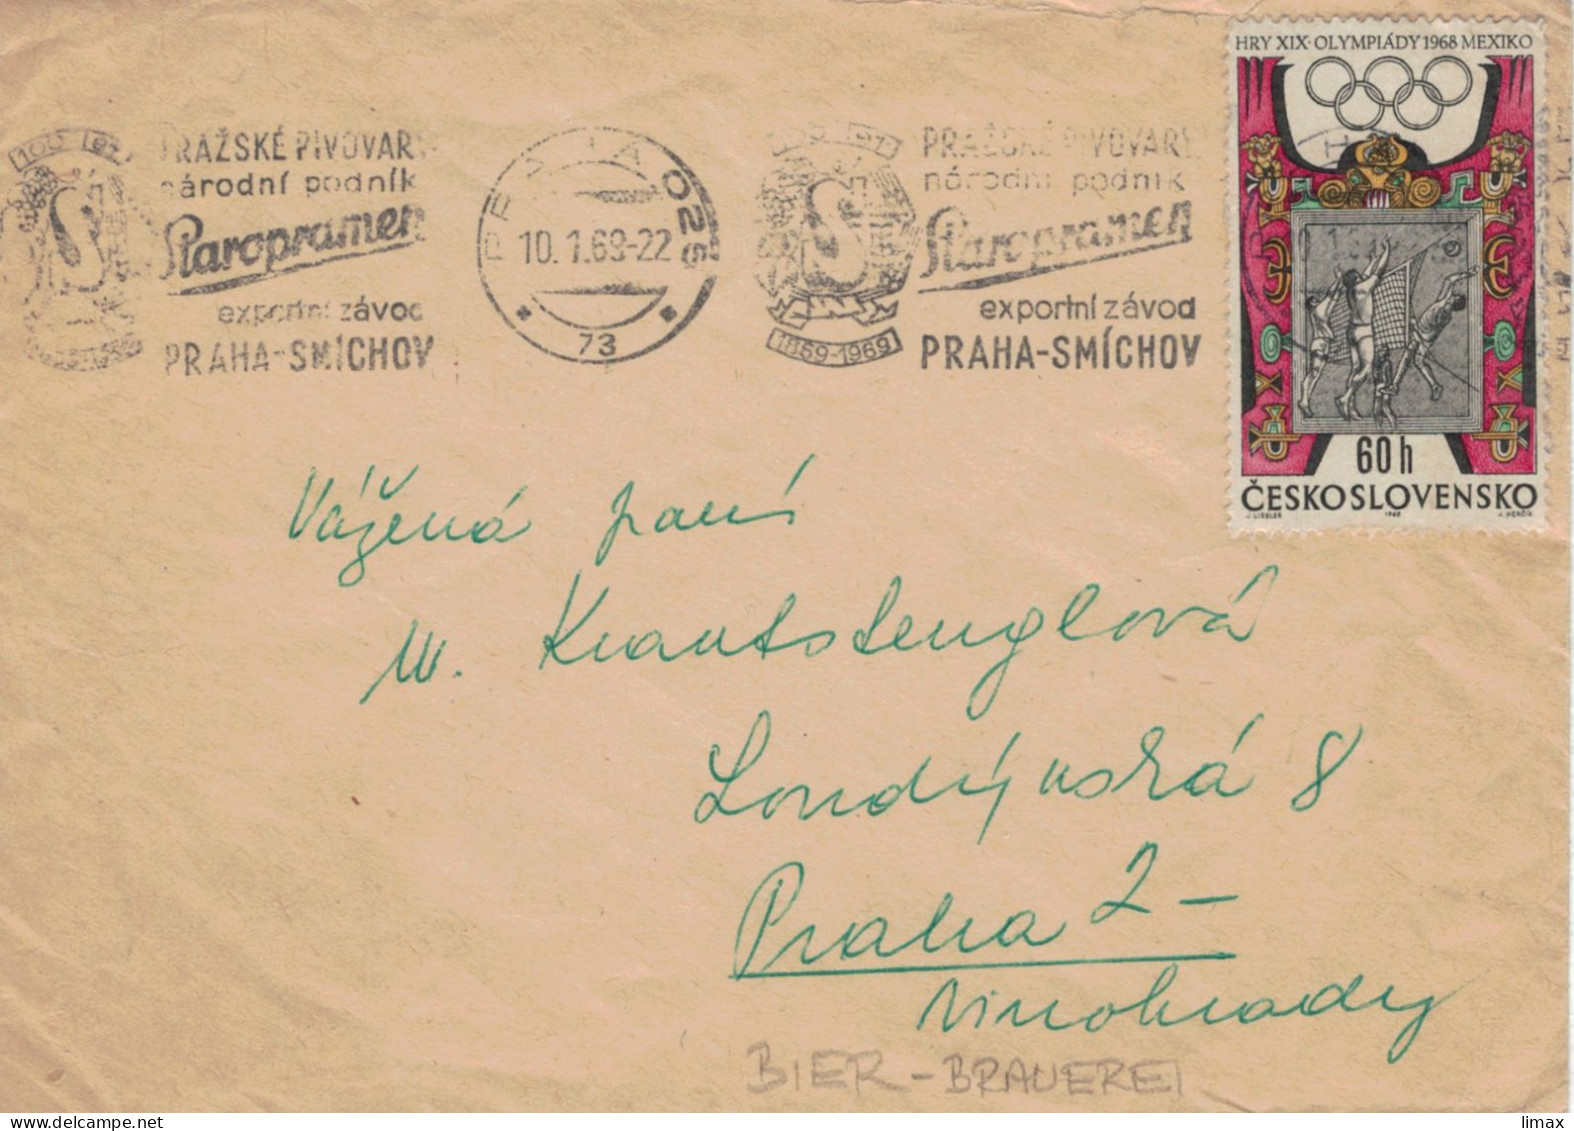 HRY XIX. OLYMPIÁDY 1968 MEXIKO
60 h
ČESKOSLOVENSKO
J. LIESLER 1968 J. HERČÍK
100 let
PRAŽSKÉ PIVOVARY
národní podnik
Staropramen
exportní závod
PRAHA-SMÍCHOV
025
10. 1. 69-22
73
100 let
1869-1969
PRAŽSKÉ PIVOVARY
národní podnik
Staropramen
exportní závod
PRAHA-SMÍCHOV
Vážená paní
M. Krautstenglová
Londýnská 8
Praha 2 -
Vinohrady
BIER - BRAUEREI
limax